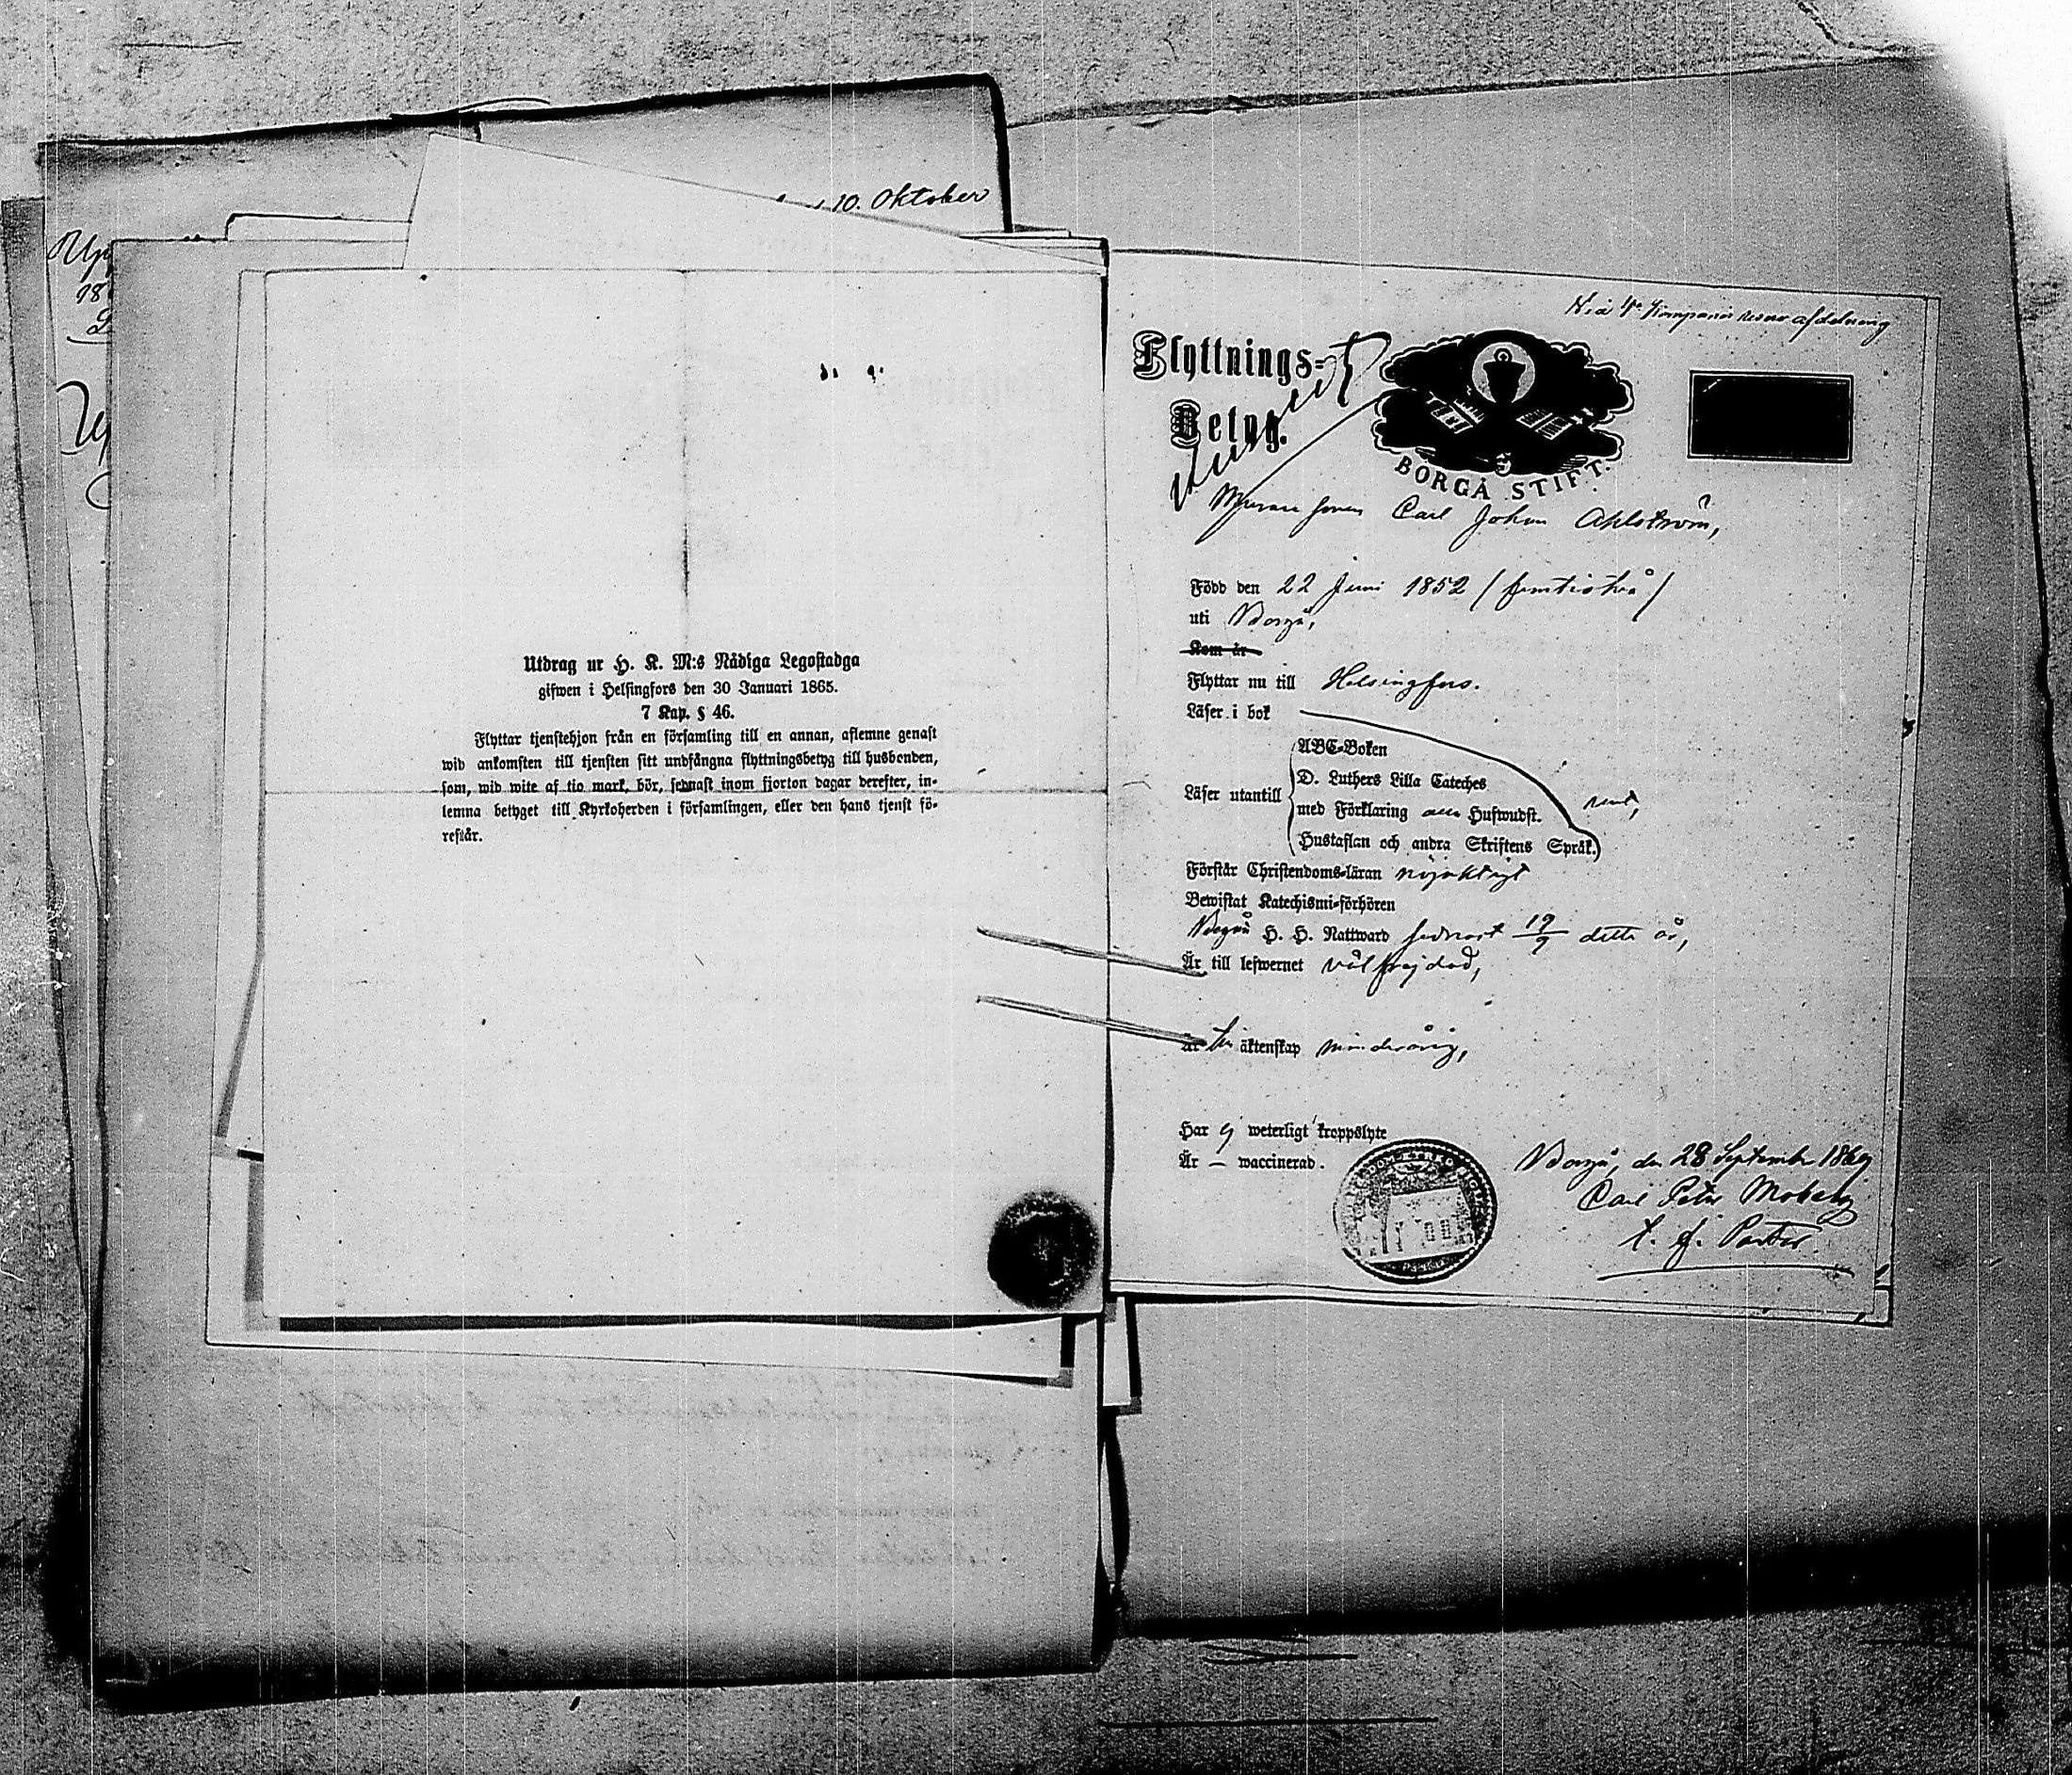 10. Oktober
Upp
Utdrag ur H. K. M:s Nådiga Legostadga
gifwen i Helsingfors den 30 Januari 1865.
7 Kap. § 46.
Flyttar tjenstehjon från en församling till en annan, aflemne genast
wid ankomsten till tjensten sitt undfångna flyttningsbetyg till husbonden,
som, wid wite af tio mark, bör, sednast inom fjorton dagar derefter, in-
lemna betyget till Kyrkoherden i församlingen, eller den hans tjenst fö-
restår.
afdelning
Flyttnings-
Betyg.
BORGÅ STIFT.
Carl Johan Ahlström,
Född den 22 Juni 1852 / femtiotvå /
uti Borgå,
Kom år
Flyttar nu till Helsingfors.
Läser i bok
ABC-Boken
D. Luthers Lilla Cateches
Läser utantill
med Förklaring Hufwudst.
rent,
Hustaflan och andra Skriftens Språk.
Förstår Christendoms-läran nöjaktigt
Bewistat Katechismi-förhören
Begått H. H. Nattward sednast 19/9 detta år,
Är till lefwernet välfrejdad,
Är till äktenskap minderårig,
Har ej weterligt kroppslyte
Är — waccinerad.
Borgå, den 28 September 1869
Carl Peter Moberg
t. f. Pastor.